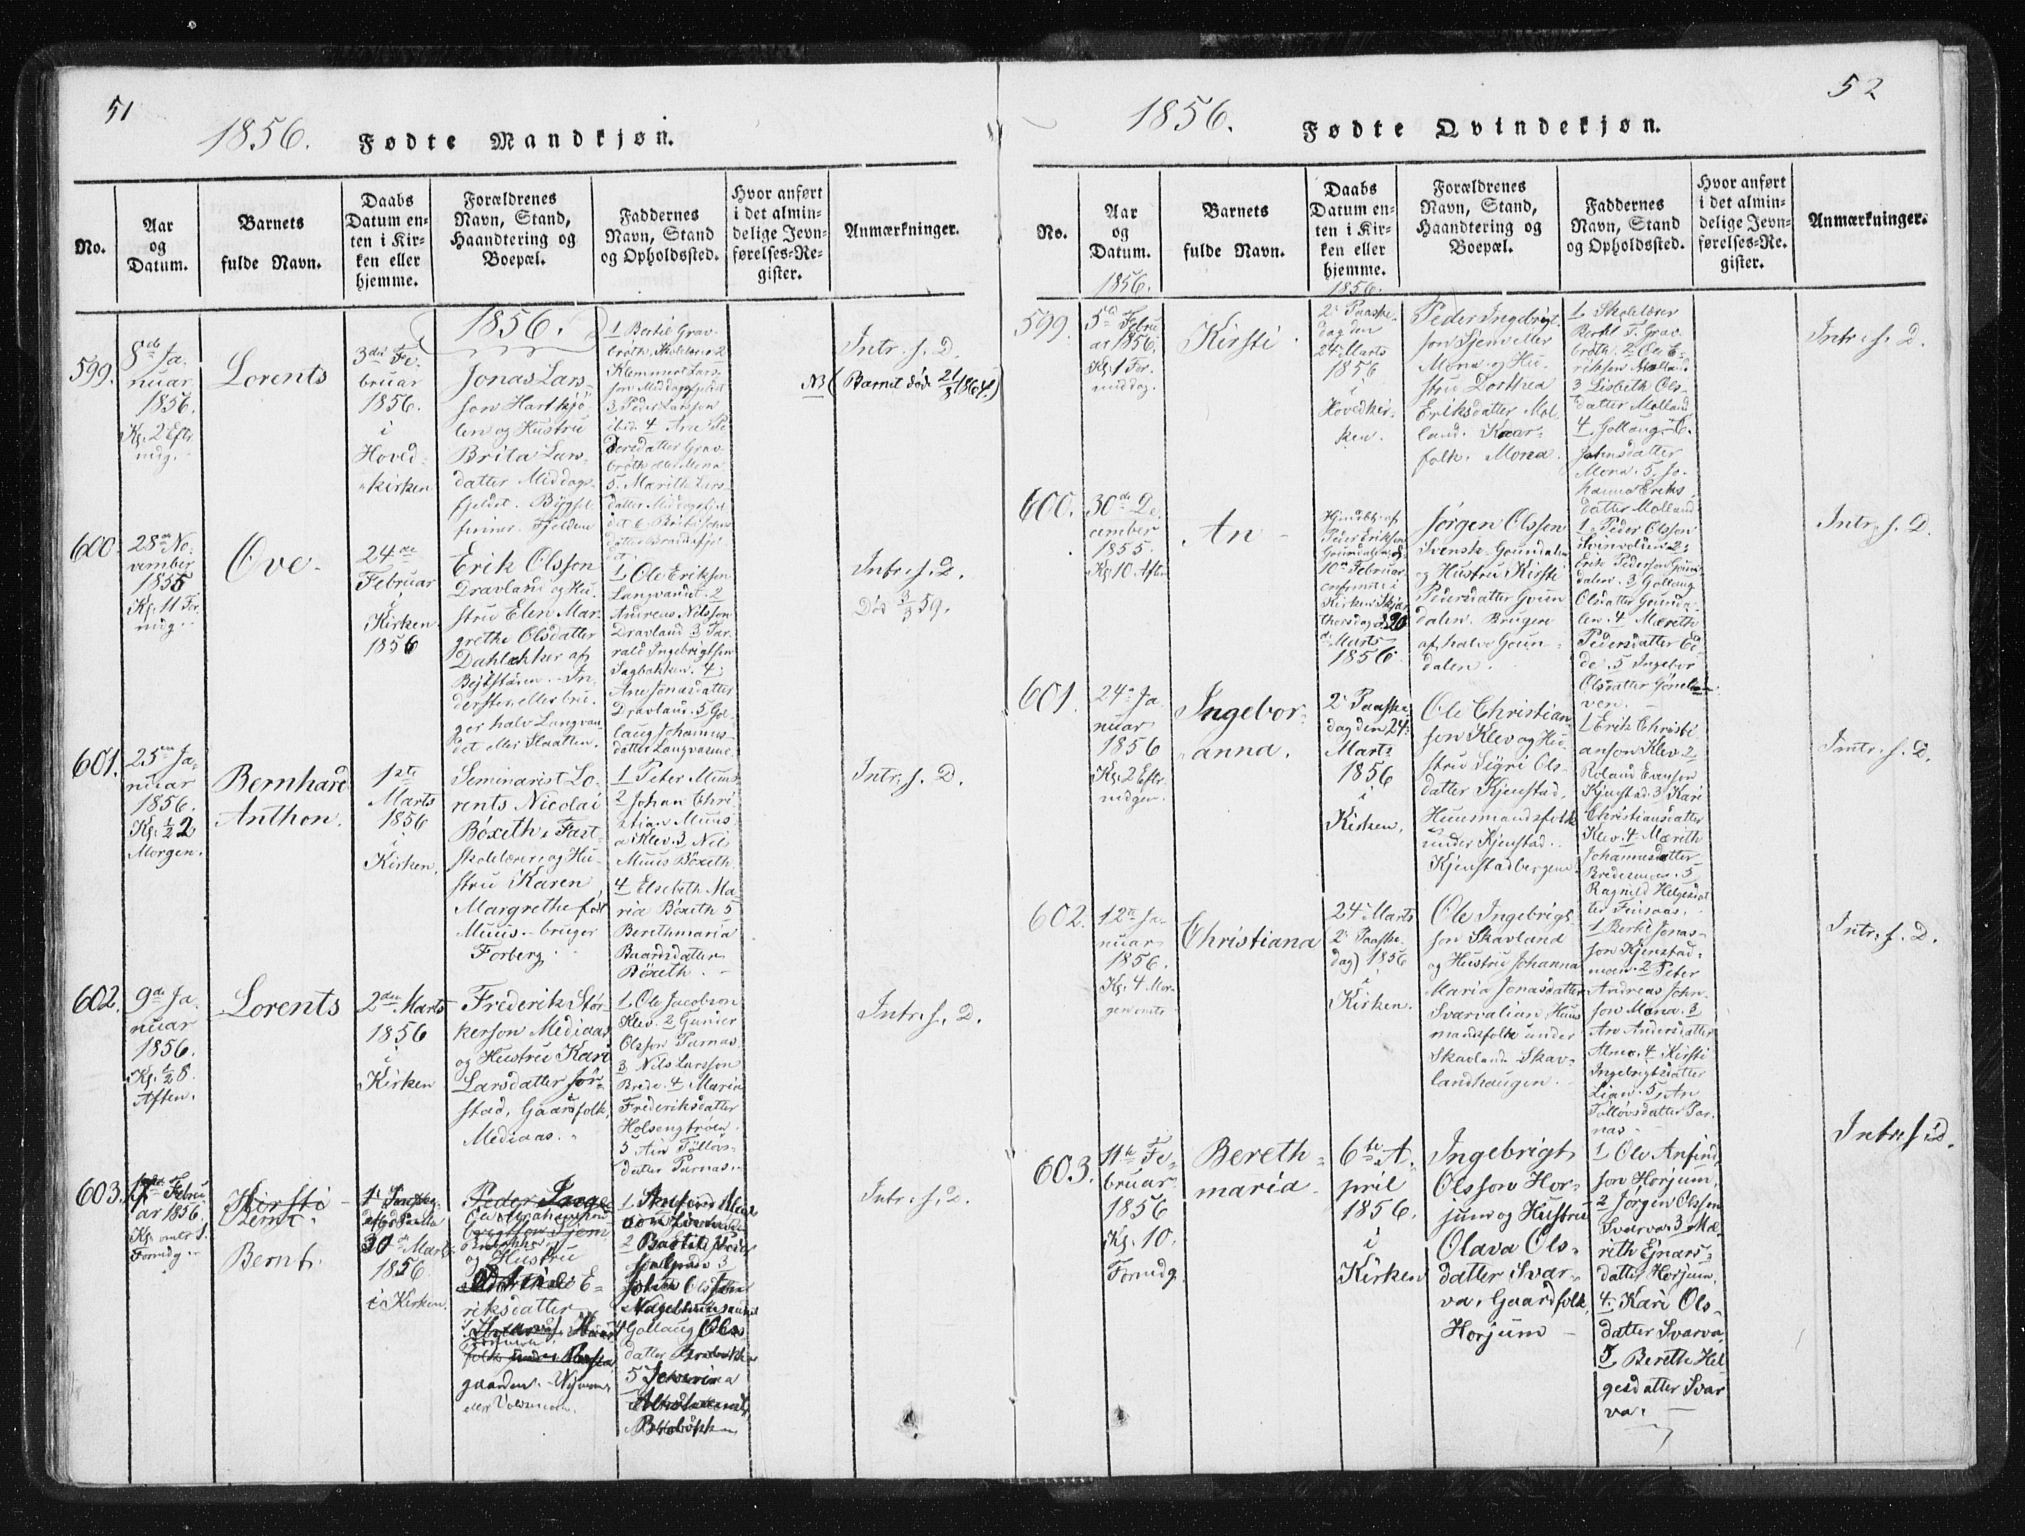 51
1856. Fødte Mandkjøn.
No.
Aar
og
Datum.
Barnets
fulde Navn.
Daabs
Datum en-
ten i Kir-
ken eller
hjemme.
Forældrenes
Navn, Stand,
Haandtering og
Boepæl.
Faddernes
Navn, Stand
og Opholdssted.
Hvor anført
i det almin-
delige Jevn-
førelses-Re-
gister.
Anmærkninger.
1856.
599.
8de Ja-
nuar
1856.
Kl. 2 Eftr
mdg.
Lorents
3die Fe-
bruar
1856.
i
Hoved-
kirken
Jonas Lars-
son Hartkjø-
len og Hustru
Brita Lars-
datter Middags-
fjeldet. Bygsel-
finner. Fjeldene
1 Bertil Grav-
brøth. Skolelærer 2
Klemmet Lars-
son Middagsfjeldet
3 Peder Larsson
ibid. 4 Ane Pe-
dersdatter Grav-
brøth eller Mona
5. Marith Lars-
datter Middagsfjel-
det 6 Brita John-
datter
Intr. s. D.
NB (Barnet död 21/3 1864.)
600.
28de No-
vember
1855
Kl. 11 For-
mdg.
Ove.
24de
Februar
i
Kirken
1856
Erik Olsson
Dravland og Hu-
stru Elen Mar-
grethe Olsdatter
Dahl
af
Bejtstaden. In-
dersten eller bru-
ger halv Langvan-
det eller Slaatten.
1 Ole Erikson
Langvandet. 2
Andreas Nilsson
Dravland 3 Tar-
rald Ingebrigtson
Sagbakken. 4
Ane Jonasdatter
Dravland. 5 Gol-
laug Johannes-
datter
Intr. s. D.
Död 3/3 59.
601.
25de Ja-
nuar
1856.
Kl. ½ 2
Morgen.
Bernhard
Anthon.
1ste
Marts
1856
i
Kirken.
Seminarist Lo-
rents Nicolai
Böxeth, Fast-
skolelærer og Hu-
stru Karen
Margrethe født
Muus - bruger
Forberg.
1 Peter Muus
2 Johan Chri-
stian Muus
Klev. 3 Nils
Muus Böxeth
4 Elsebeth Ma-
ria Böxeth 5
Berethmaria
Baardsdatter
Böxeth.
Intr. s. D.
602.
9de Ja-
nuar
1856.
Kl. ½ 8.
Aften.
Lorents
2den Marts
1856
i
Kirken
Frederik Stör-
kerson Mediaas
og Hustru Kari
Larsdatter Jør-
stad, Gaardfolk,
Mediaas.
1 Ole Jacobson
Klev. 2 Gunder
Olsson Parnas.
3 Nils Larsson
Brede. 4 Maria
Frederiksdatter
Holsengtrøen
5 Ain Tølløvs-
datter Parnas.
Intr. s. D.
603.
Febru
ar 1856.
Kl.
Formdg
Kirsti
Bernt.
Bernt.
30 Marts
1856
i Kirken.
Peder Inge
og Hustru
E-
riksdatter
folk
gaarden.
eller
1
2
3
Gollaug Ols
datter
5
Intr. s. D.
52
1856. Fødte Qvindekjøn.
No.
Aar
og
Datum.
1856.
Barnets
fulde Navn.
Daabs
Datum en-
ten i Kir-
ken eller
hjemme.
1856.
Forældrenes
Navn, Stand,
Haandtering og
Boepæl.
Faddernes
Navn, Stand
og Opholdssted.
Hvor anført
i det almin-
delige Jevn-
førelses-Re-
gister.
Anmærkninger.
599.
5te Febru
ar 1856.
Kl. 1 For-
middag.
Kirsti
2. Paaske-
dag den
24. Marts
1856
i
Hovedkir-
ken.
Peder Ingebrigt-
son Tjem eller
Mona og Hu-
stru Dorthea
Eriksdatter Mol-
land. Kaar-
folk. Mona.
1 Skolelærer
Bertil T. Grav-
brøth. 2 Ole E-
rikson Molland.
3 Lisbeth Ols-
datter Molland
4 Gollaug
Johnsdatter
Mona. 5 Jo-
hanna Eriks-
datter Molland
Intr. s. D.
600.
30de De-
cember
1855.
Kl. 10. Aften
An
Hjmdbt. af
Peder Erikson
Gaundalen d.
10de Februar
confirmert i
Kirken Skjær-
thorsdag d. 20
Marts
1856.
Jørgen Olsson
Svensk-Gaundalen
og Hustru Kirsti
Pedersdatter Gaun-
dalen. Brugere
af halve Gaun-
dalen.
1 Peder Olsson
2
Erik Pederson Gaun-
dalen. 3 Gollaug
Olsdatter Gaunda-
len. 4 Mærith
Pedersdatter Ei-
de. 5 Ingebor
Olsdatter
ven.
Intr. s. D.
601.
24de Ja-
nuar
1856
Kl. 2 Eftr-
mdgen.
Ingebor-
anna.
2. Paaske
dag den 24.
Marts
1856
i
Kirken.
Ole Christian-
son Klev og Hu-
stru Sigri Ols-
datter Kjenstad.
Huusmandsfolk
under Kjenstad.
Kjenstadbergene
1 Erik Christi-
anson Klev. 2
Roland Evenson
Kjenstad. 3 Kari
Christiansdatter
Klev. 4 Mærith
Johannesdatter
Bredesmoen. 5
Ragnild Helgesdat-
ter Finsaas.
Intr. s. D.
602.
12te Ja-
nuar
1856.
Kl. 4 Mor-
genen
Christiana
24. Marts
2. Paaske-
dag) 1856
i
Kirken.
Ole Ingebrigt-
son Skavland
og Hustru Johanna
Maria Jonasdatter
Svarvalien Huus-
mandsfolk under
Skavland. Skav-
landhaugen.
1 Bertil Jonas-
son Kjenstad-
moen. 2 Peter
Andreas John-
son Mona. 3
An Andersdatter
Almo. 4 Kirsti
Ingebrigtsdatter
Lian. 5. An
Tølløvsdatter Par-
nas
Intr. s. D.
603.
11te Fe-
bruar
1856
Kl. 10.
Formdg.
Bereth-
maria
6te A-
pril
1856.
i
Kirken
Ingebrigt
Olsson Hor-
jum og Hustru
Olava Ols-
datter Svar-
va, Gaardfolk,
Horjum
1 Ole Anfind-
son Horjum,
2 Jørgen Olsson
Svarva. 3 Mæ-
rith Ejnars-
datter Horjum.
4. Kari Ols-
datter Svarva
5 Berethe Hel-
gesdatter Svar-
va.
Intr. s. D.